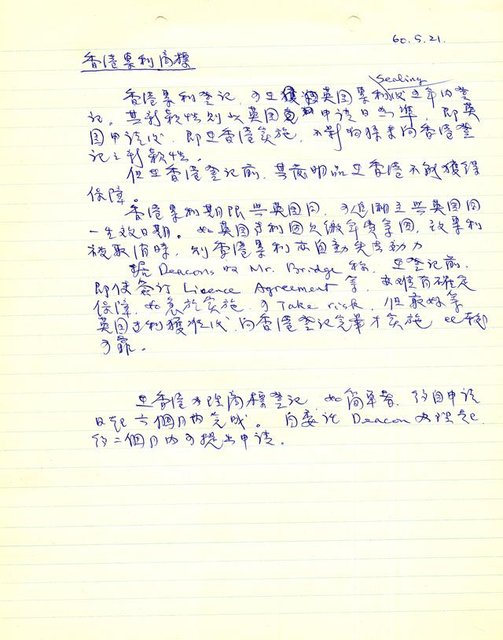 60.5.21.
香港專利商標
Sealing
香港專利登記,可在獲英国專利後五年內登
記。其新穎性則以英国申請日為準,即英
国申請後,即在香港實施,不影响將來向香港登
記之新穎性。
但在香港登記前,其發明品在香港不能獲得
保障。
香港專利期限與英国同,可追溯至與英国同
一生效日期。如英国專利因欠繳年費等因,該專利
被取消時,則香港專利亦自動失去効力
據 Deacons 的 Mr. Bridge 稱,在登記前,
即使簽訂 Licence Agreement 等,亦難有確定
保障,如急於實施,可 Take risk,但最好等
英国專利獲准後,向香港登記完畢才實施,比較
可靠。
在香港辦理商標登記,如簡單者,約自申請
日起六個月內完成。自委託 Deacon 辦理起
約二個月內可提出申請。